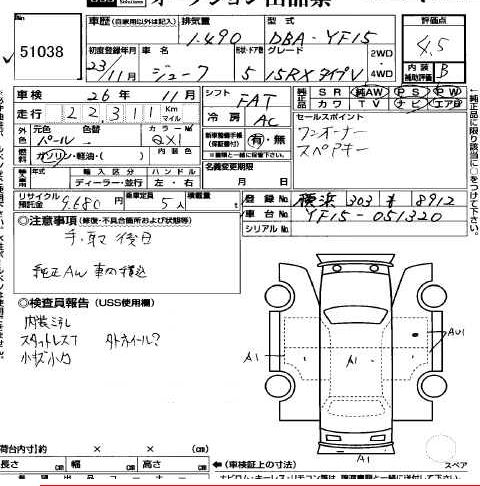 51038
車歴 (自家用以外はここに記入)
排気量 1.490
型式 DBA-YF15
評価点 4.5
初度登録年月 23/11月
車名 ジューク
形状・ドア数 5
グレード 15RXタイプV
2WD
4WD
内装補助評価 B
車検 26年 11月
シフト FAT
純正 SR 純AW PS PW
社外 カワ TV ナビ エアB
走行 22,311 Km マイル
冷房 AC
セールスポイント
ワンオーナー
スペアキー
外色 元色 パール 色替
カラーNo QX1
内装色
新車整備手帳(保証書付) 有・無
燃料 ガソリン・軽油・( )
名義変更期限 月 日
輸入車 年式 輸入区分 ハンドル
ディーラー・並行 左・右
リサイクル預託金 9,680円
乗車定員 5人
積載量 kg
登録No. 横浜 303 8912
車台No. YF15-051320
シリアルNo.
◎注意事項 (修復・不具合箇所および状態等)
手・取 後日
純正AW 車内積込
◎検査員報告 (USS使用欄)
スタットレス
小キズ小凹
A1
A1
A1
AU1
荷台内寸)約 × × (cm)
長さ cm 幅 cm 高さ cm
(車検証上の寸法)
スペア